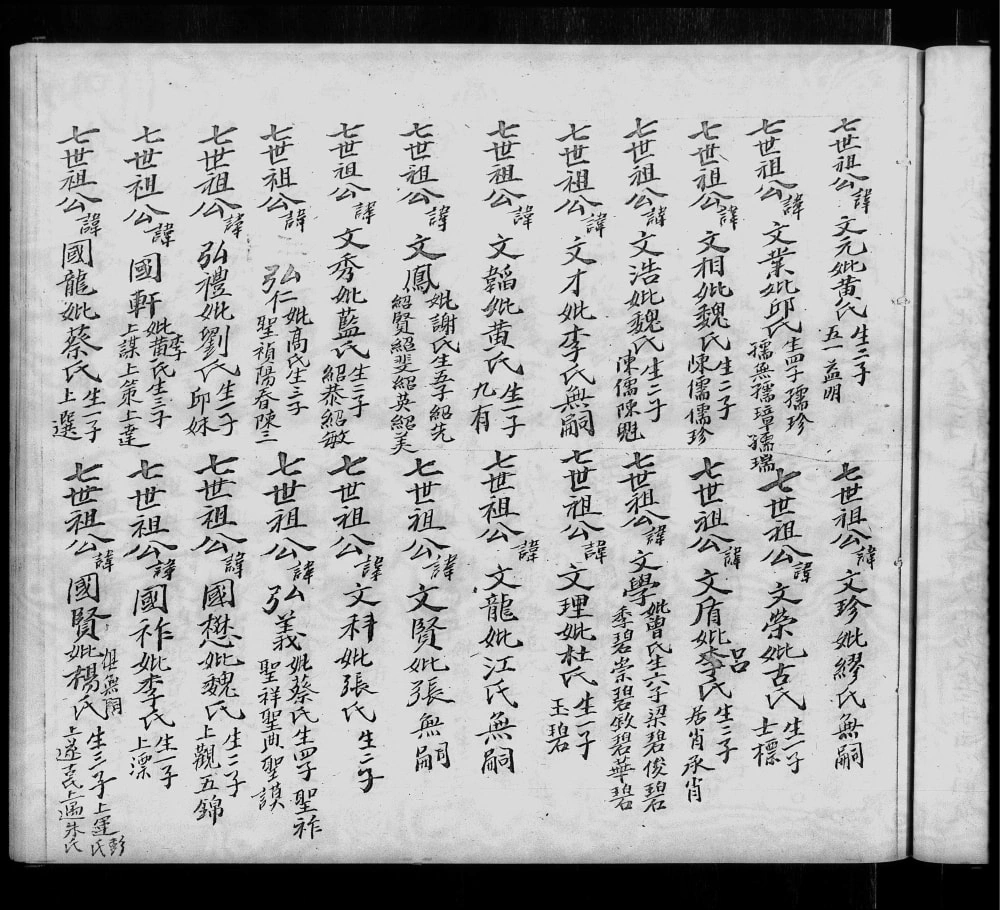 七世祖公諱文元妣黄氏生二子五一益明
七世祖公諱文業妣邱氏生四子孺珍孺無孺璋孺瑞
七世祖公諱文相妣魏氏生二子陳儒儒珍
七世祖公諱文浩妣魏氏生二子陳儒陳魁
七世祖公諱文才妣李氏無嗣
七世祖公諱文韜妣黄氏生一子九有
七世祖公諱文鳳妣謝氏生五子紹先紹賢紹斐紹英紹美
七世祖公諱文秀妣藍氏生二子紹恭紹敏
七世祖公諱弘仁妣高氏生三子聖禎陽春陳三
七世祖公諱弘禮妣劉氏生一子邱妹
七世祖公諱國軒妣黄李氏生三子上謀上策上達
七世祖公諱國龍妣蔡氏生一子上選
七世祖公諱文珍妣繆氏無嗣
七世祖公諱文榮妣古氏生一子士標
七世祖公諱文盾妣李呂氏生二子居肖承肖
七世祖公諱文學妣曾氏生六子梁碧俊碧季碧崇碧敘碧華碧
七世祖公諱文理妣杜氏生一子玉碧
七世祖公諱文龍妣江氏無嗣
七世祖公諱文賢妣張無嗣
七世祖公諱文科妣張氏生二子
七世祖公諱弘義妣蔡氏生四子聖祚聖祥聖典聖謨
七世祖公諱國懋妣魏氏生二子上觀五錦
七世祖公諱國祚妣李氏生一子上漂
七世祖公諱國賢妣楊氏俱無嗣生三子上運彭氏上遂古氏上過朱氏